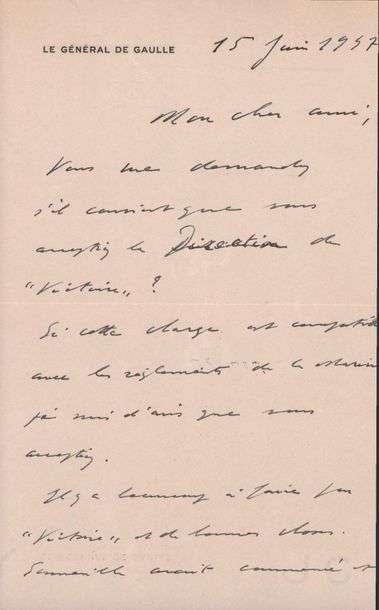 LE GÉNÉRAL DE GAULLE
15 Juin 1947
Mon cher ami,
Vous me demandez
s'il convient que vous
acceptiez la Direction de
"Victoire" ?
Si cette charge est compatible
avec les règlements de la Marine
j'ai suis d'avis que vous
acceptiez.
Il y a beaucoup à faire par
"Victoire" et de bonnes choses.
avait commencé